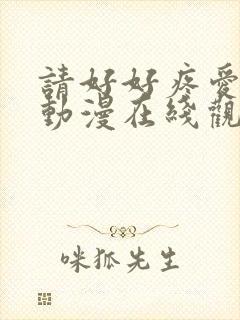 請好好疼愛
動漫在綫觀
咪狐先生